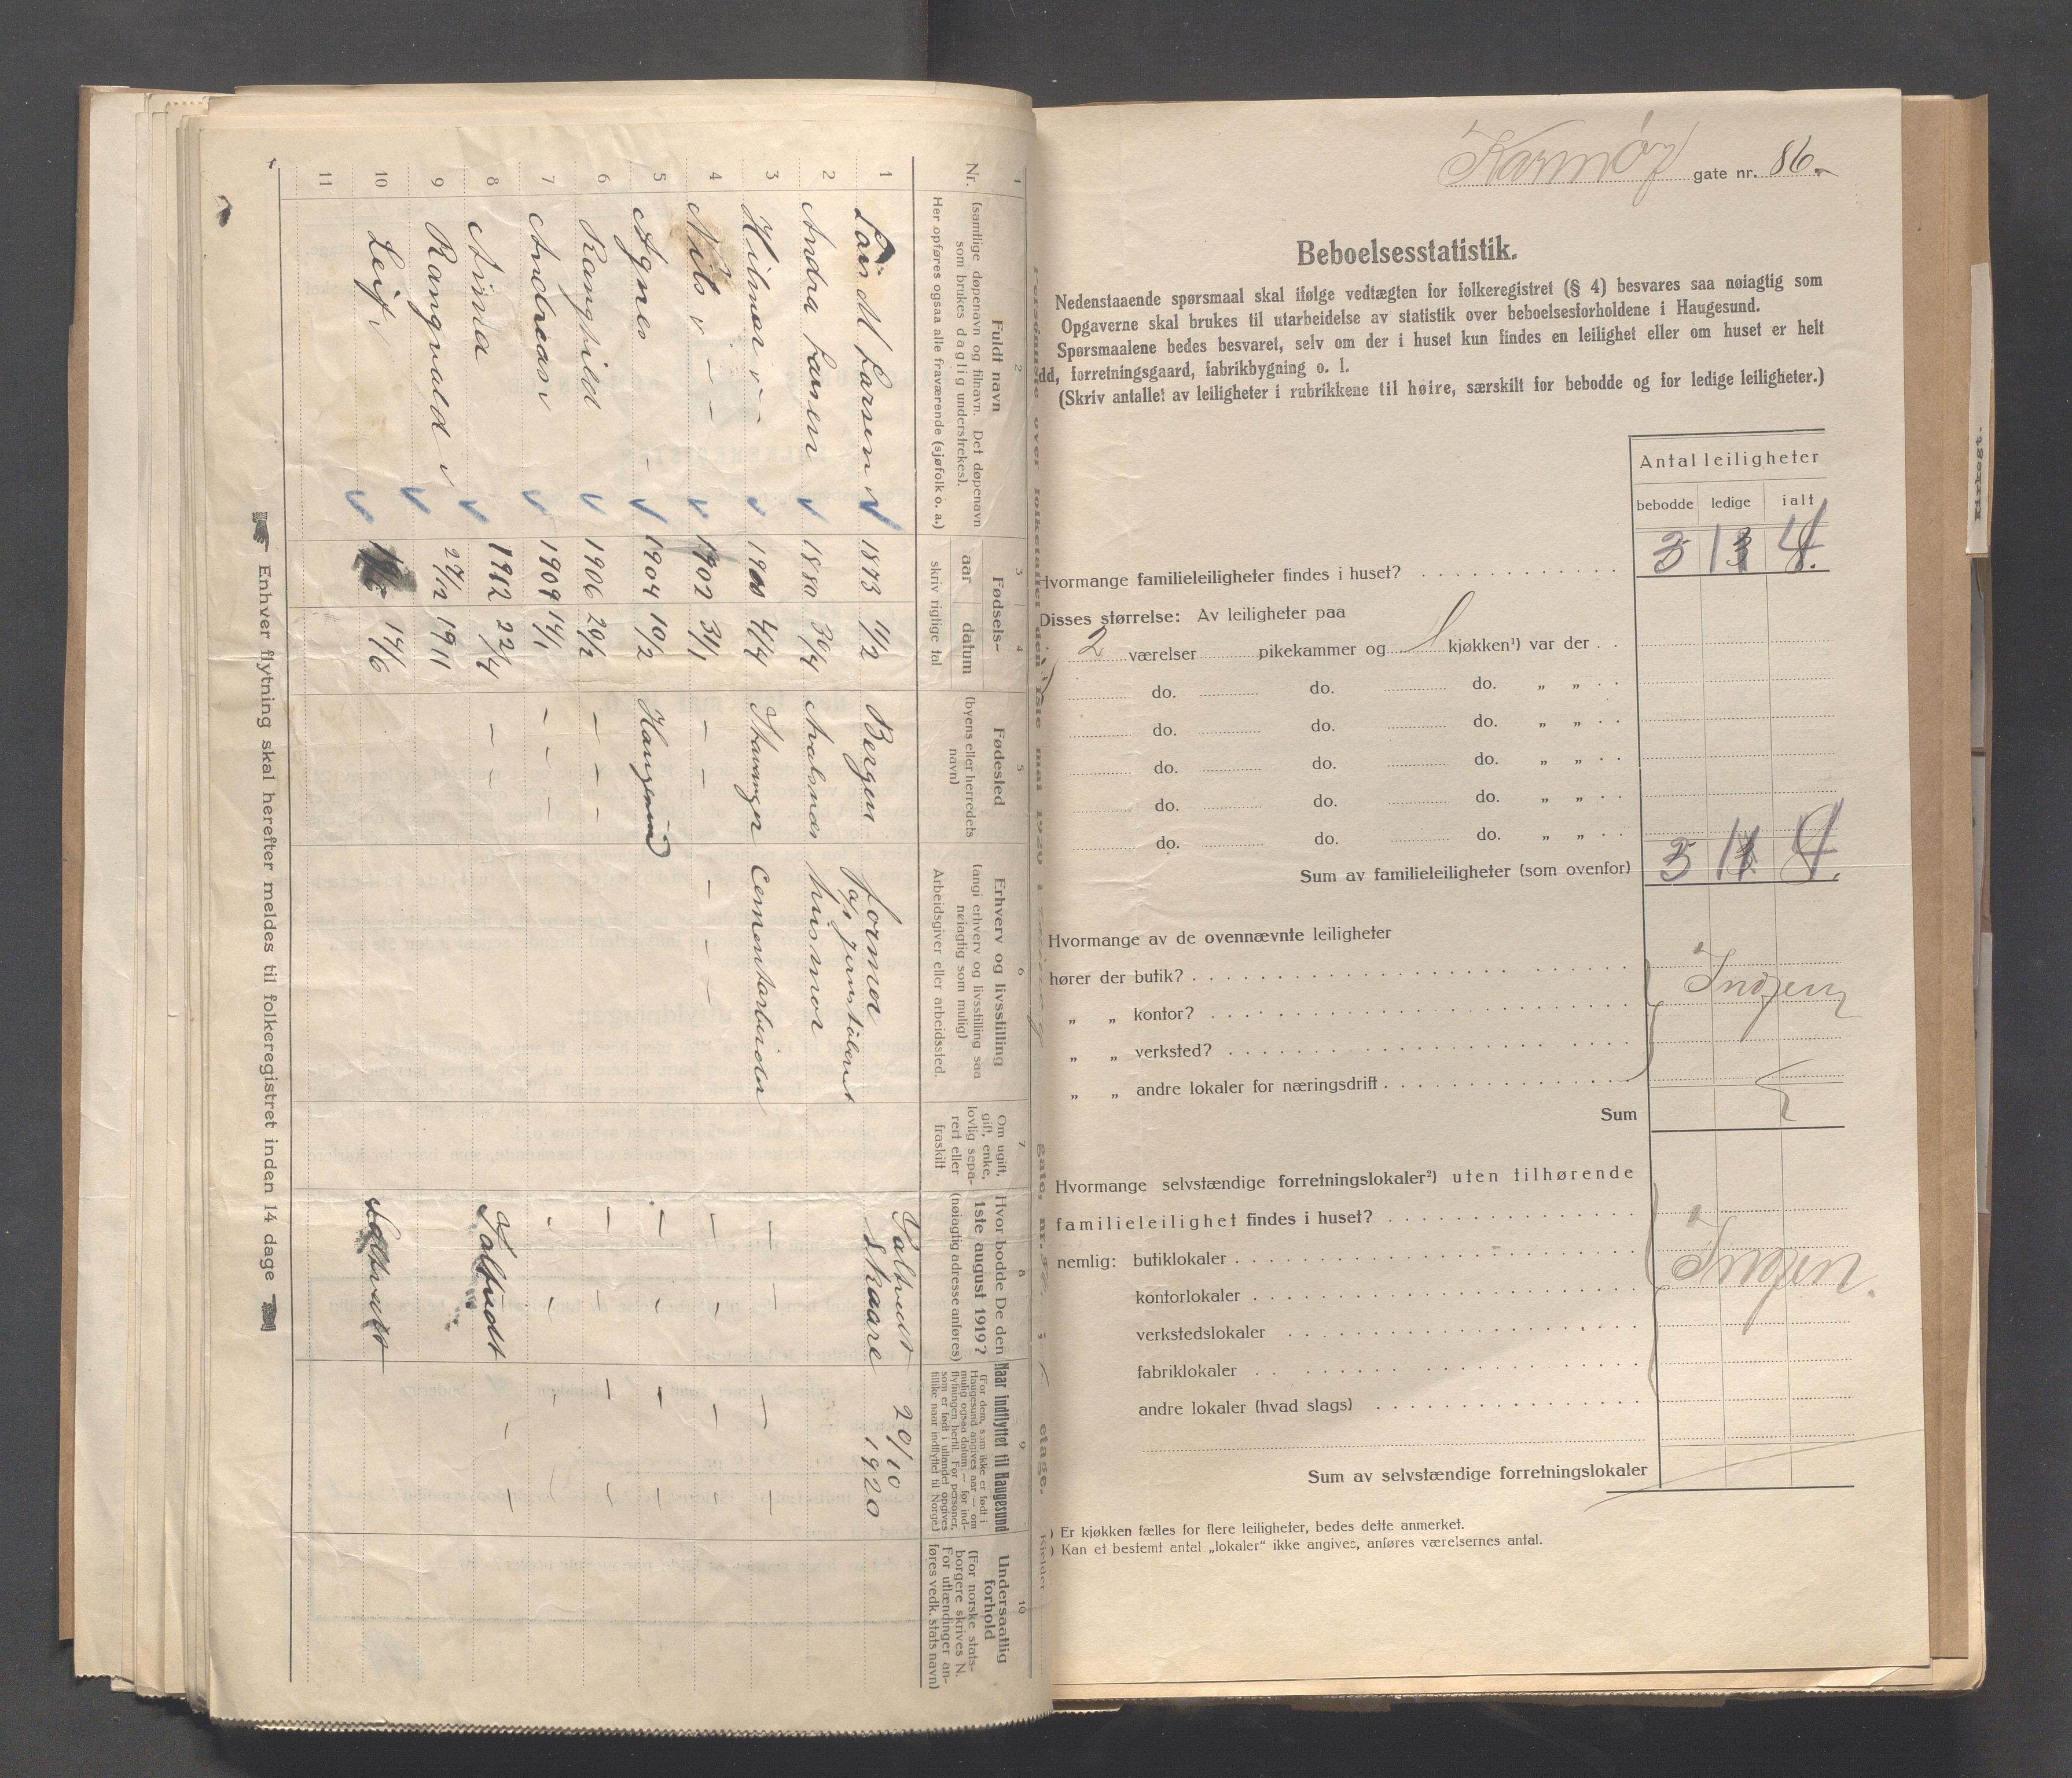 Nr.
Fuldt navn
(samtlige døpenavn og tilnavn. Det døpenavn
som brukes daglig understrekes).
Her opføres ogsaa alle fraværende (sjøfolk o. a.)
Fødsels-
aar datum
skriv rigtige tal
Fødested
(byens eller herredets
navn)
Erhverv og livsstilling
(angi erhverv og livsstilling saa
nøiagtig som mulig)
Arbeidsgiver eller arbeidssted.
Om ugift,
gift, enke,
lovlig sepa-
rert eller
fraskilt
Hvor bodde De den
1ste august 1919?
(nøiagtig adresse anføres)
Naar indflyttet til Haugesund
(For dem, som ikke er født i
Haugesund angives aar — om
mulig ogsaa datum — for ind-
flytningen hertil. For personer,
som er født i utlandet opgives
tillike naar indflyttet til Norge)
Undersaatlig
forhold
(For norske stats-
borgere skrives N.
For utlændinger an-
føres vedk. stats navn)
1 2 3 4 5 6 7 8 9 10
1 Lars M Larsen 1873 11/2 Bergen former Skaare 20/10 1920
2 Andra Larsen 1880 30/4 Avalsnes husmor
3 Hilmar 1900 4/4 Stavanger Cementarbeider — — — —
4 Nils — — 1902 31/1 — — — — — — — — —
5 Agnes 1904 10/2 Haugesund — — — —
6 Ranghild 1906 20/2 — — — — — — —
7 Andreas 1909 14/1 — — — — — — —
8 1912 22/4 — — — —
9 Rangvald 27/12 1911
10 Leif 14/6
11
Enhver flytning skal herefter meldes til folkeregistret inden 14 dage
Karmøy gate nr. 86.
Beboelsesstatistik.
Nedenstaaende spørsmaal skal ifølge vedtægten for folkeregistret (§ 4) besvares saa nøiagtig som
Opgaverne skal brukes til utarbeidelse av statistik over beboelsesforholdene i Haugesund.
Spørsmaalene bedes besvaret, selv om der i huset kun findes en leilighet eller om huset er helt
dd, forretningsgaard, fabrikbygning o. l.
(Skriv antallet av leiligheter i rubrikkene til høire, særskilt for bebodde og for ledige leiligheter.)
Antal leiligheter
bebodde ledige ialt
Hvormange familieleiligheter findes i huset? 3 1 4.
Disses størrelse: Av leiligheter paa
2 værelser pikekammer og 1 kjøkken¹) var der
do. do. do. „ „
do. do. do. „ „
do. do. do. „ „
do. do. do. „ „
do. do. do. „ „
Sum av familieleiligheter (som ovenfor) 3 1 4.
Hvormange av de ovennævnte leiligheter
hører der butik? Ingen
„ „ kontor?
„ „ verksted?
„ „ andre lokaler for næringsdrift
Sum
Hvormange selvstændige forretningslokaler²) uten tilhørende
familieleilighet findes i huset?
nemlig: butiklokaler Ingen.
kontorlokaler
verkstedslokaler
fabriklokaler
andre lokaler (hvad slags)
Sum av selvstændige forretningslokaler
) Er kjøkken fælles for flere leiligheter, bedes dette anmerket.
) Kan et bestemt antal „lokaler“ ikke angives, anføres værelsernes antal.
Kirkegt.